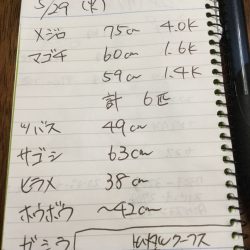 5/29 (水)
メジロ 75cm 4.0K
マゴチ 60cm 1.6K
59cm 1.4K
計 6匹
ツバス 49cm
サゴシ 63cm
ヒラメ 38cm
ホウボウ ～42cm
ガシラ